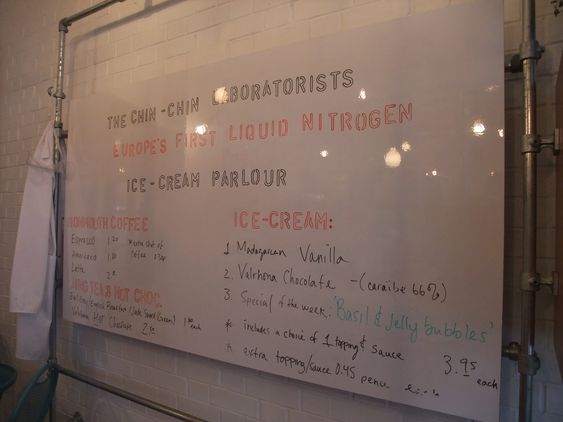 THE CHIN-CHIN LABORATORISTS
EUROPE'S FIRST LIQUID NITROGEN
ICE-CREAM PARLOUR
MONMOUTH COFFEE
Espresso
* extra shot of
Coffee
Americano
Latte
TEAS HOT CHOC.
Valrhona Hot Chocolate 2.50
ICE-CREAM:
1. Madagascan Vanilla
2. Valrhona Chocolate - (caraibe 66%)
3. Special of the week: 'Basil & Jelly bubbles'
* includes a choice of 1 topping & sauce 3.95 each
* extra topping/sauce 0.45 pence